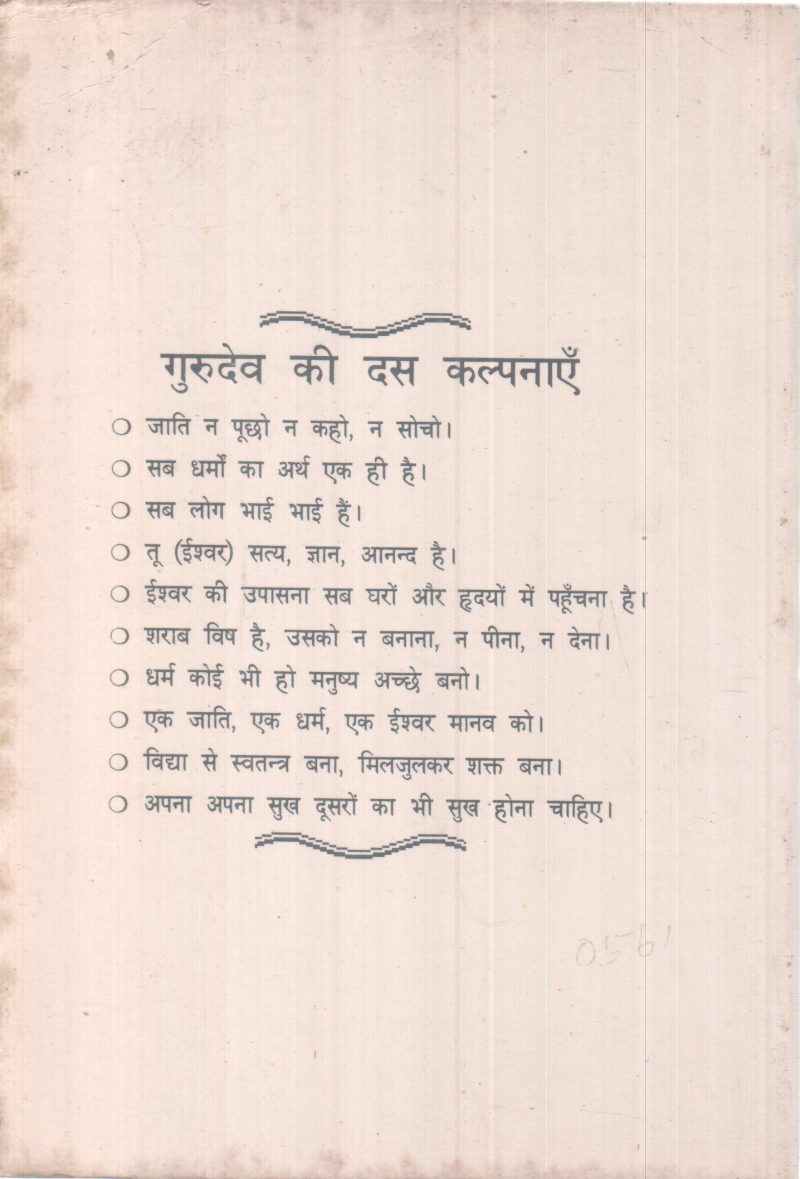 गुरुदेव की दस कल्पनाएँ
❍ जाति न पूछो न कहो, न सोचो।
❍ सब धर्मों का अर्थ एक ही है।
❍ सब लोग भाई भाई हैं।
❍ तू (ईश्वर) सत्य, ज्ञान, आनन्द है।
❍ ईश्वर की उपासना सब घरों और हृदयों में पहूँचना है।
❍ शराब विष है, उसको न बनाना, न पीना, न देना।
❍ धर्म कोई भी हो मनुष्य अच्छे बनो।
❍ एक जाति, एक धर्म, एक ईश्वर मानव को।
❍ विद्या से स्वतन्त्र बना, मिलजुलकर शक्त बना।
❍ अपना अपना सुख दूसरों का भी सुख होना चाहिए।
0561